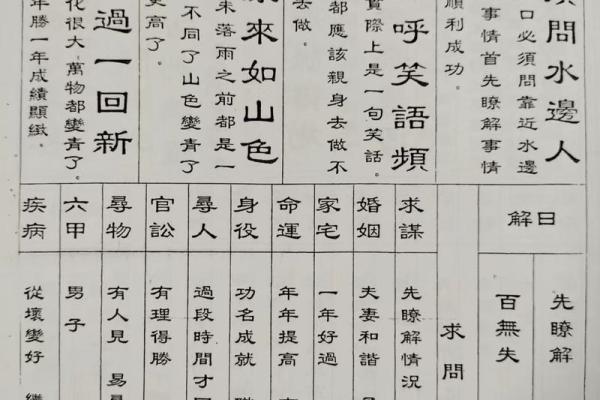 問水邊人
口必須問靠近水邊
事情首先瞭解事情
順利成功。
呼笑語頻
實際上是一句笑話。
都應該親身去做不
去做。
來如山色
未落雨之前都是一
不同了山色變青了
更高了。
過一回新
化很大萬物都變青了。
年勝一年成績顯緻。
日解
先瞭解
百無失
求問
求謀
先瞭解情況
婚姻
夫妻和諧
家宅
一年好過
命運
年年提高
身役
功名成就
尋人
過段時間才
官訟
有理得勝
尋物
有人見 易
六甲
男子
疾病
從壞變好